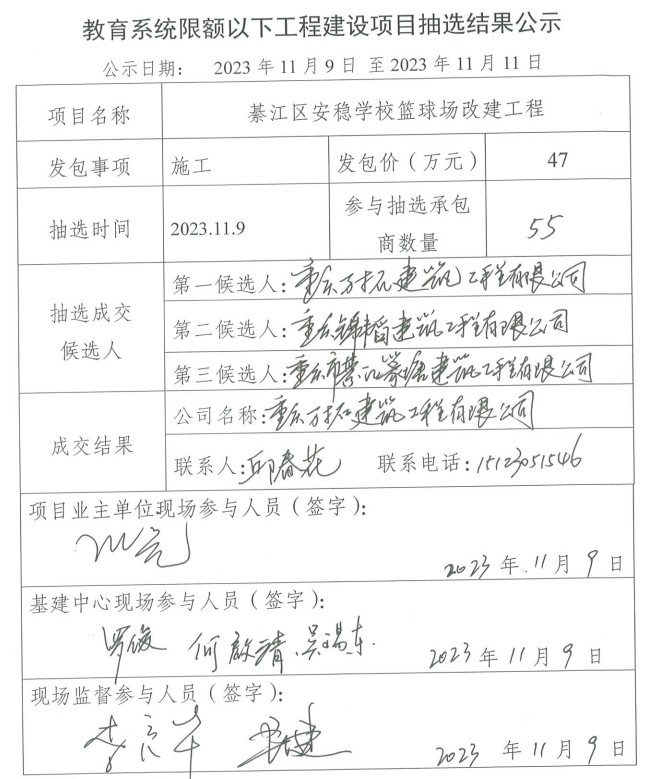 教育系统限额以下工程建设项目抽选结果公示
公示日期： 2023年11月9日 至 2023年11月11日
项目名称 綦江区安稳学校篮球场改建工程
发包事项 施工 发包价（万元） 47
抽选时间 2023.11.9 参与抽选承包
商数量 55
抽选成交
候选人
第一候选人：重庆万拓建筑工程有限公司
第二候选人：重庆锦韬建筑工程有限公司
第三候选人：重庆市綦江篆塘建筑工程有限公司
成交结果
公司名称：重庆万拓建筑工程有限公司
联系人：邱春花 联系电话：15123051546
项目业主单位现场参与人员（签字）：
2023年11月9日
基建中心现场参与人员（签字）：
罗俊 何 2023年11月9日
现场监督参与人员（签字）：
2023年11月9日